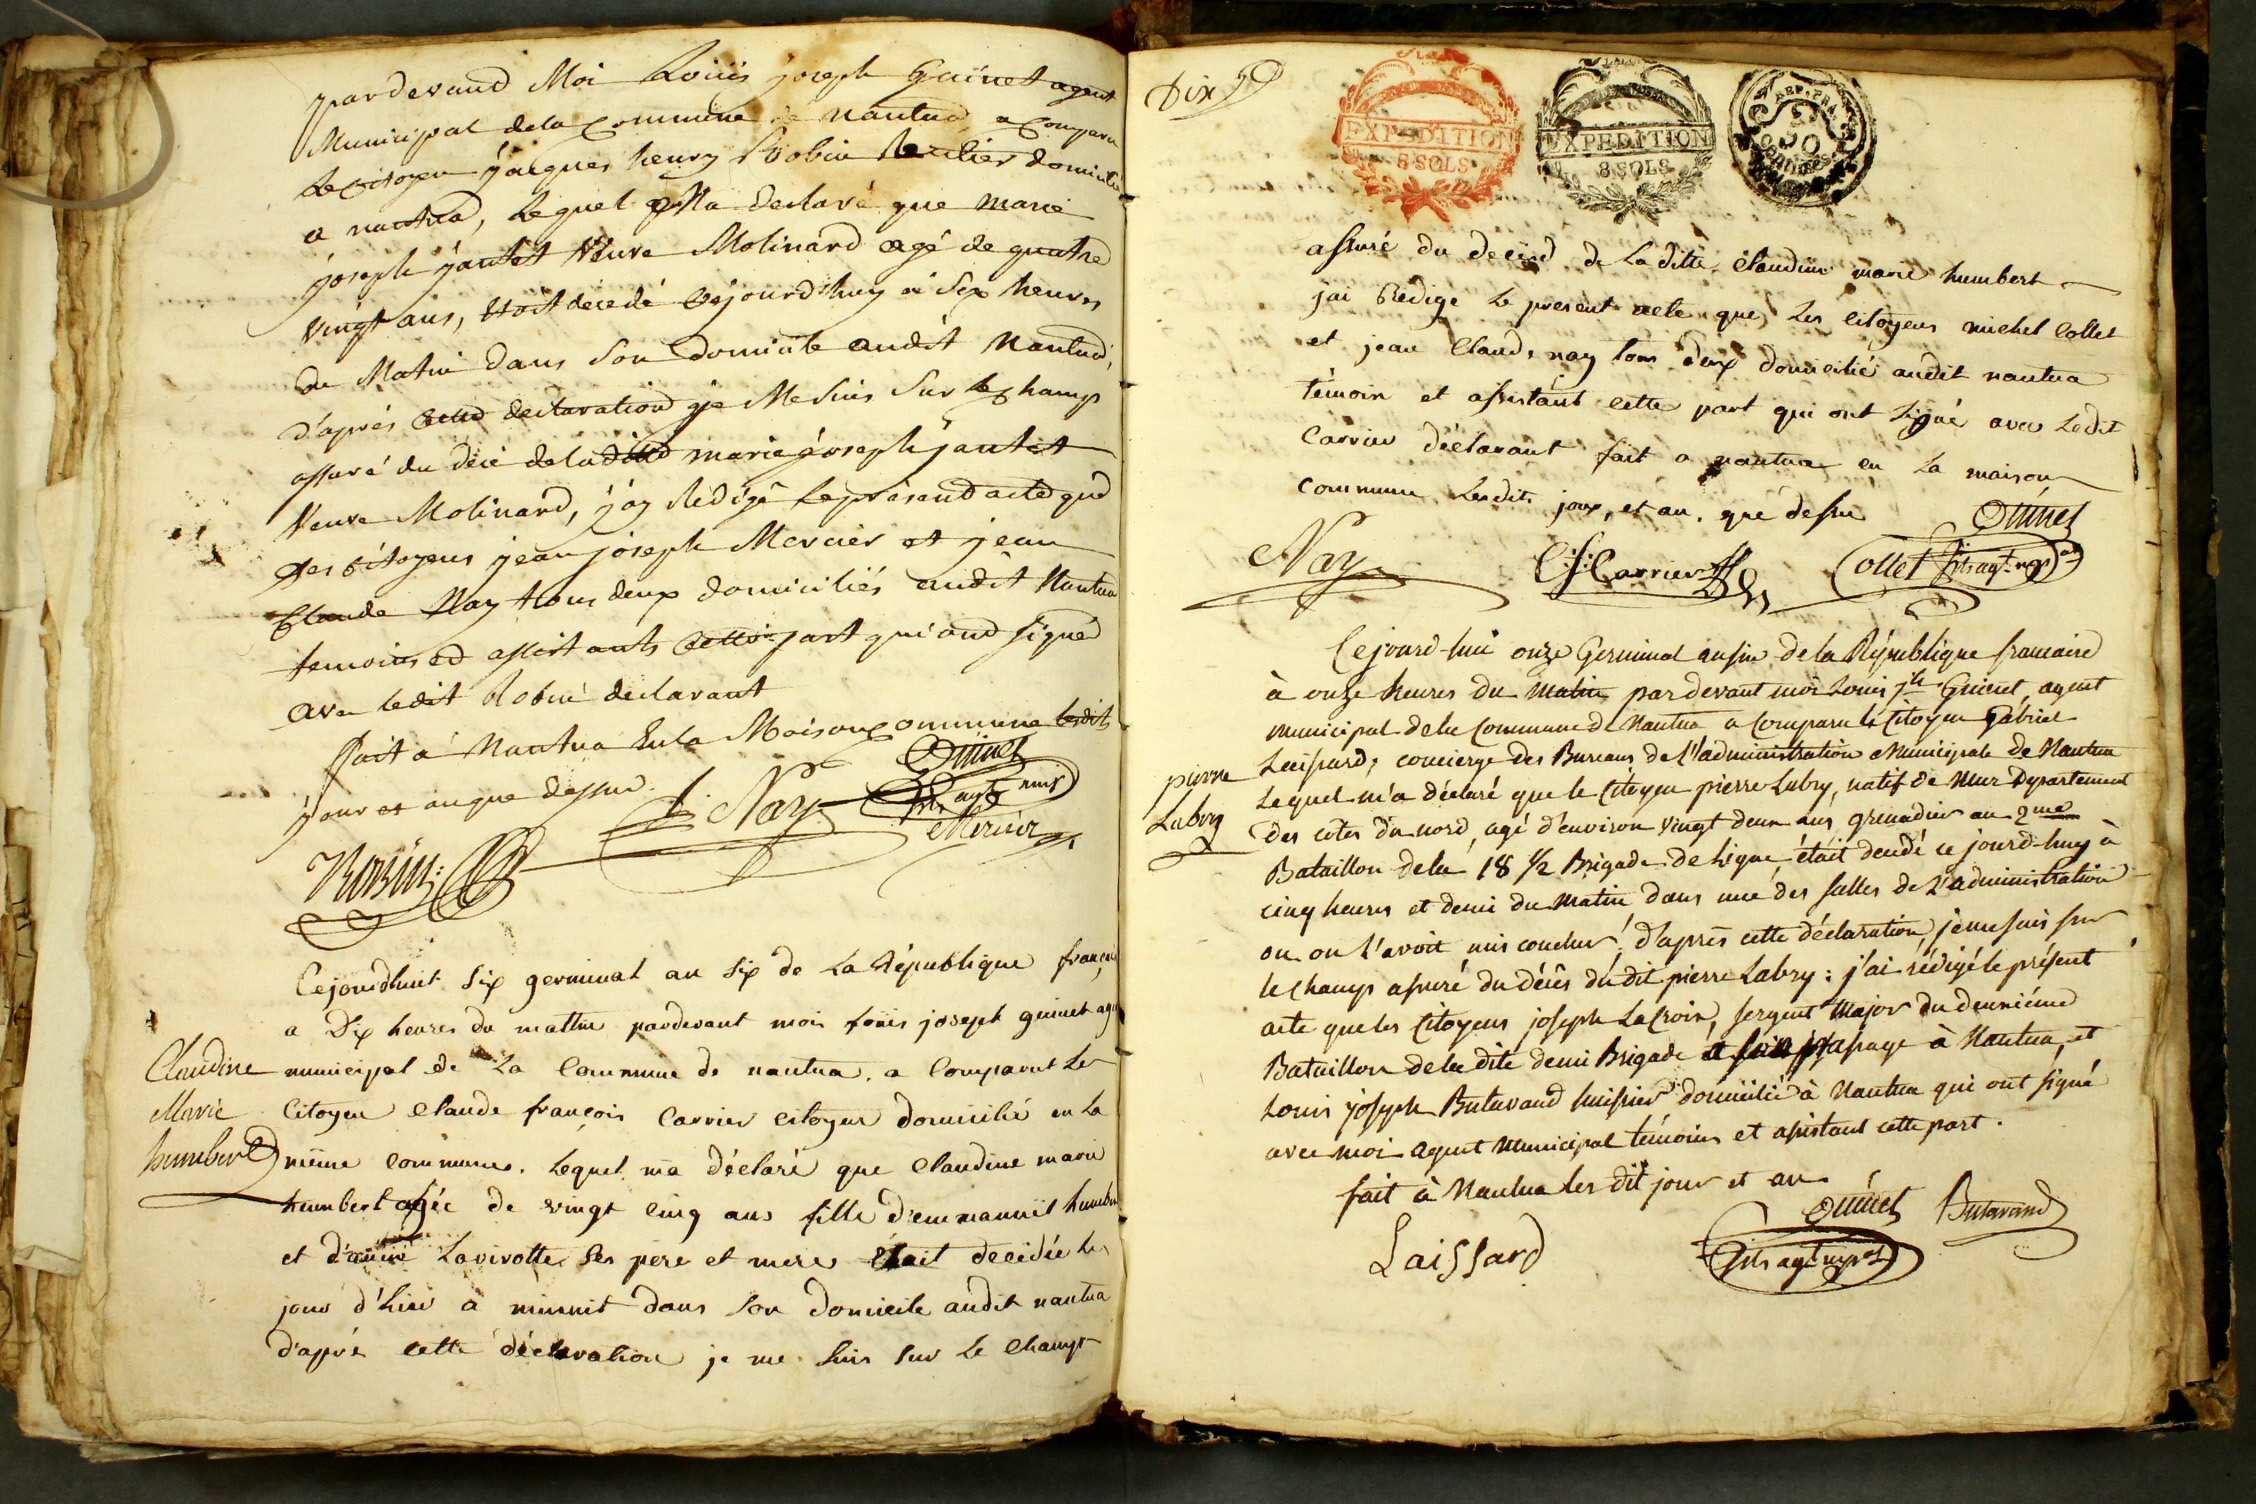 pardevand Moi Loüis joseph Guinet agent
Municipal dela Commune de nantua, a Comparu
le Citoyen jacques henry Robin domicilié
a nantua, lequel Ma declaré que marie
joseph jantet Veuve Molinard agé de quatre
vingt ans, etoit décedé Cejourd'huy à Six heures
du Matin dans Son domicile audit Nantua,
d'aprés Cette declaration je Me Suis Sur le Champ
assuré du décé deladitte marie joseph jantet
Veuve Molinard, j'ay Redigé le présand acte que
les Citoyens jean joseph Mercier et jean
Claude Nay tous deux domiciliés audit Nantua
temoins ed assistants Cette part qui ond signé
avec ledit Robin declarant
fait a Nantua En la Maison Commune lesdits
jour et an que dessus.
Guinet
J. Nay
Mercier
Robin
Cejourdhuit Six germinal an Six de La République française
a Dix heures du mattin pardevant moi Loüis joseph guinet agent
Claudine
Marie
humbert
municipal de La Commune de nantua. a Comparut Le
Citoyen Claude françois Carrier citoyen domicilié en La
même Commune. Lequel ma déclaré que Claudine marie
humbert agée de vingt cinq ans fille d'emmanuël humbert
et d'anne Lavirotte Ses pere et mere était decedée le
jour d'hier a minuit dans Son domicile audit nantua
d'aprés cette déclaration je me Suis Sur Le Champt
Dix
EXPEDITION
8 SOLS
EXPEDITION
8 SOLS
REP. FRA
50
assuré du deced de Laditte Claudine marie humbert
jai Rédigé Le present acte que Les Citoyens michel Collet
et jean Claude nay tous deux domicilié audit nantua
témoin et assistant cette part qui ont Signé avec Ledit
Carrier déclarant fait a nantua en La maison
Commune Lesdits jour, et an. que dessus
Guinet
Nay
C. f. Carrier
Collet
Cejourd-hui onze Germinal an six de la République francaise
à onze heures du matin par devant moi Louis jph Guinet, agent
municipal de la Commune de Nantua a Comparu le Citoyen Gabriel
pierre
Labry
Laissard, concierge des Bureaux de l'administration Municipale de Nantua
Lequel m'a déclaré que le Citoyen pierre Labry, natif de Mur Département
des cotes du nord, agé d'environ vingt deux ans, grenadier au 2me
Bataillon de la 18 1/2 Brigade de Ligne, était décédé ce jourd-huy à
cinq heures et demi du matin dans une des salles de L'administration
ou on l'avoit mis coucher, d'après cette déclaration, je me suis sur
le champ assuré du décès du dit pierre Labry: j'ai rédigé le présent
acte que les Citoyens joseph La Croix, sergent Major du deuxième
Bataillon de la dite demi Brigade passage à Nantua, et
Louis joseph Butavand huissier domicilié à Nantua qui ont signé
avec moi agent Municipal témoins et assistant cette part.
fait à Nantua les dit jour et an
Guinet
Butavand
Laissard